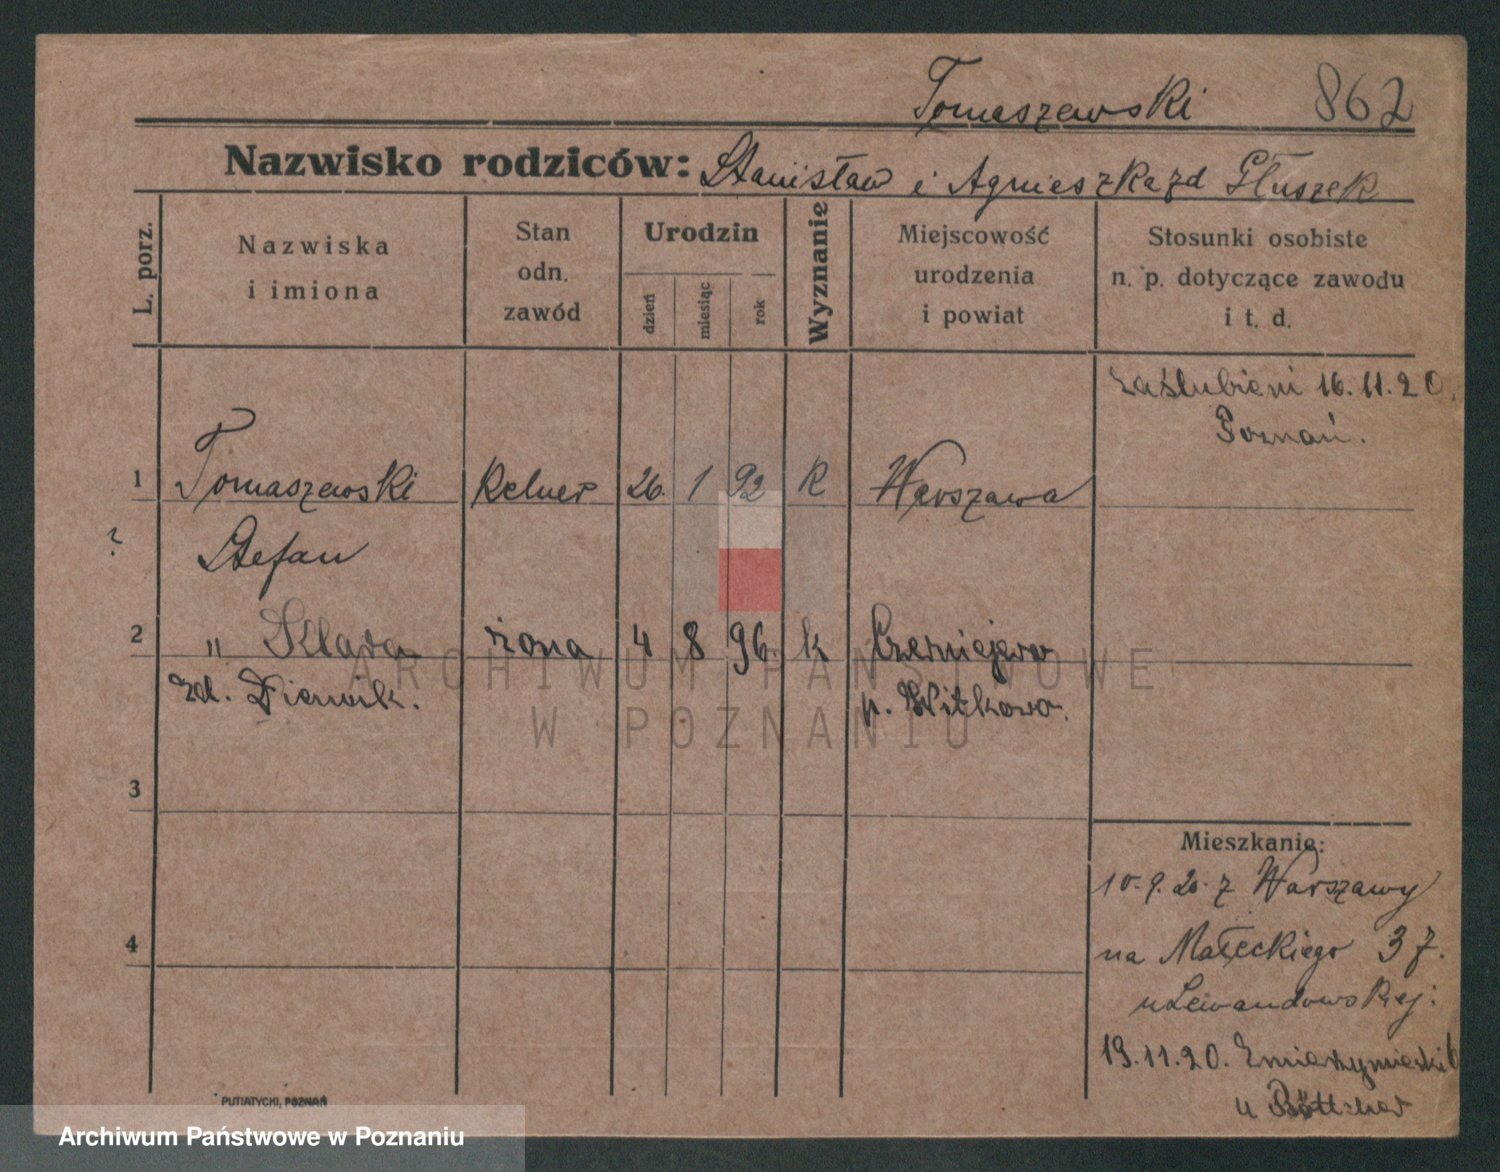 Tomaszewski 862
Nazwisko rodziców: Stanisław i Agnieszka zd Głuszek
L. porz.
Nazwiska
i imiona
Stan
odn.
zawód
Urodzin
dzień
miesiąc
rok
Wyznanie
Miejscowość
urodzenia
i powiat
Stosunki osobiste
n. p. dotyczące zawodu
i t. d.
zaślubieni 16.11.20.
Poznań.
1 Tomaszewski Kelner 26. 1 92 K Warszawa
?
Stefan
2 " Klara żona 4 8 96. k Czerniejewo
zd. p. Witkowo.
3
Mieszkanie:
10.9.20. z Warszawy
4
na Małeckiego 37.
u Lewandowskiej:
19.11.20.
u Böttcher
PUTIATYCKI, POZNAŃ
ARCHIWUM PAŃSTWOWE
W POZNANIU
Archiwum Państwowe w Poznaniu